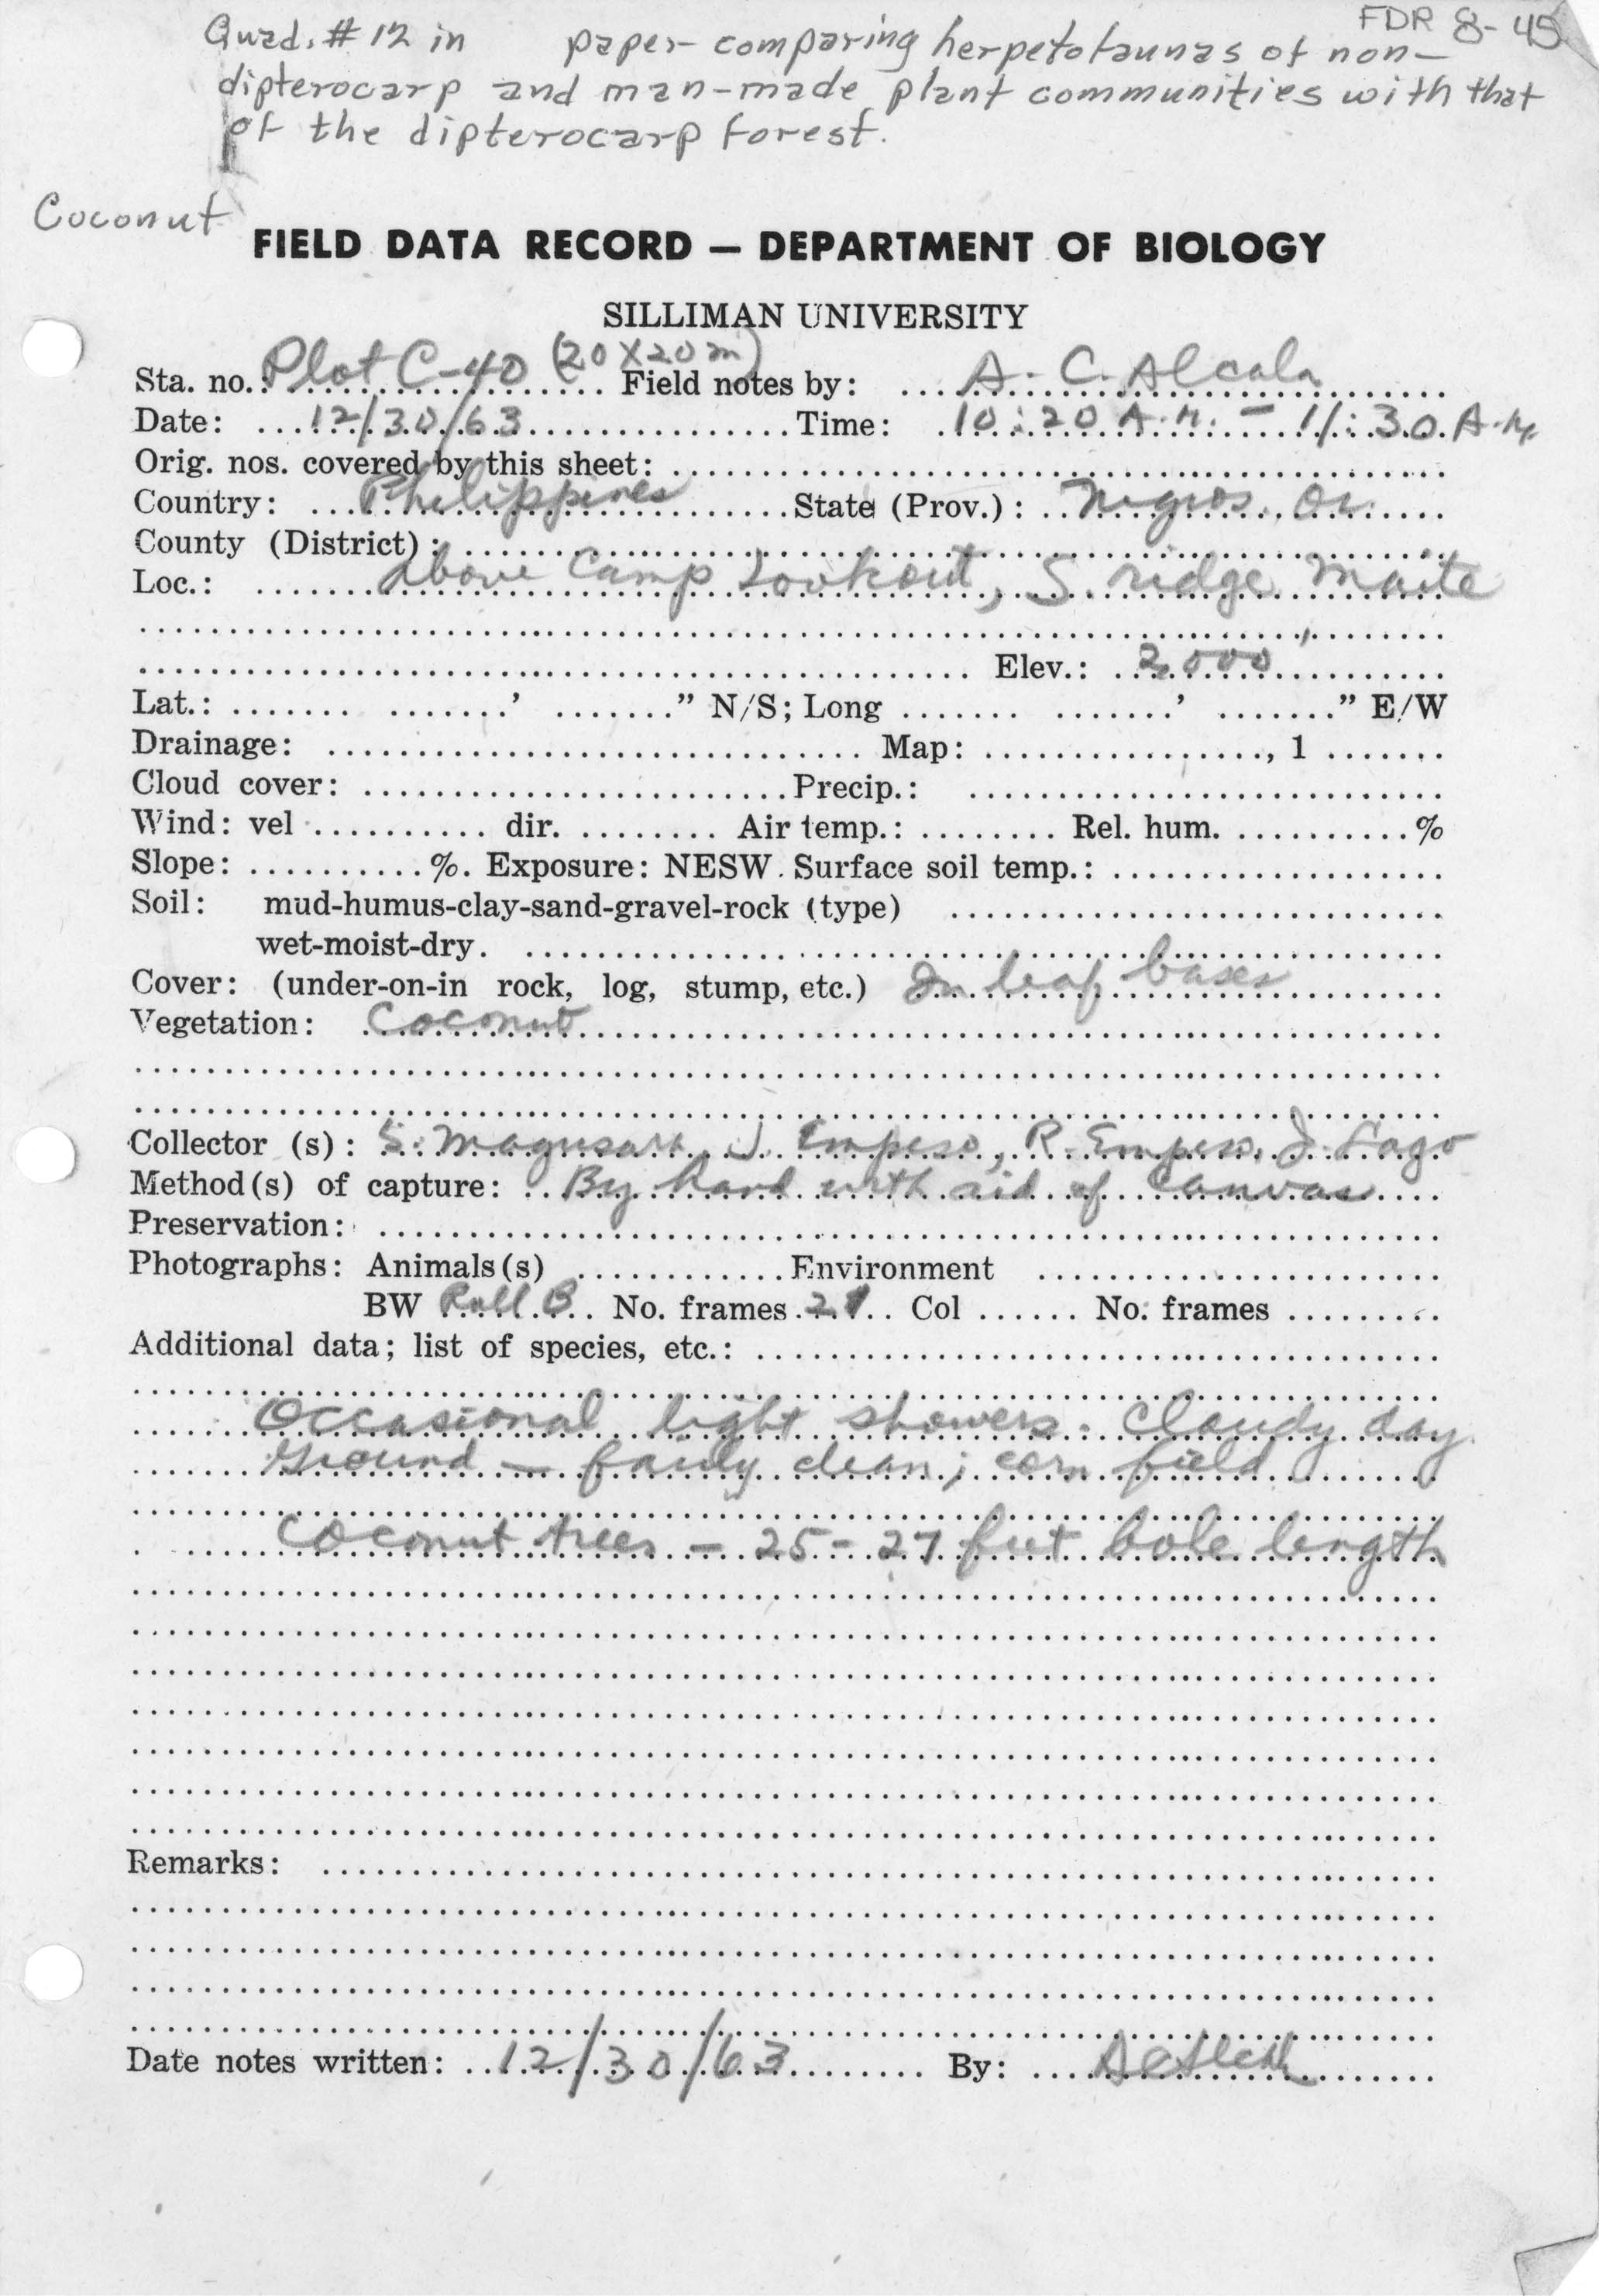 FDR 8-45
Quad. # 12 in paper comparing herpetofaunas of non-
dipterocarp and man-made plant communities with that
of the dipterocarp forest.
Coconut
FIELD DATA RECORD — DEPARTMENT OF BIOLOGY
SILLIMAN UNIVERSITY
Sta. no.: Plot C-40 (20 X 20 m) Field notes by: A. C. Alcala
Date: 12/30/63 Time: 10:20 A.M. - 11:30 A.M.
Orig. nos. covered by this sheet:
Country: Philippines State (Prov.): Negros Or.
County (District):
Loc.: Above Camp Lookout, S. ridge, Maite
Elev.: 2,000'
Lat.: ' " N/S; Long ' " E/W
Drainage: Map: , 1
Cloud cover: Precip.:
Wind: vel dir. Air temp.: Rel. hum. %
Slope: %. Exposure: NESW. Surface soil temp.:
Soil: mud-humus-clay-sand-gravel-rock (type)
wet-moist-dry.
Cover: (under-on-in rock, log, stump, etc.) In leaf bases
Vegetation: Coconut
Collector (s): S. Magusara, J. Empeso, R. Empeso, J. Lago
Method(s) of capture: By hand with aid of canvas
Preservation:
Photographs: Animals(s) Environment
BW Roll B No. frames Col No. frames
Additional data; list of species, etc.:
Occasional light showers. Cloudy day.
Ground — fairly clean; corn field
Coconut trees - 25-27 feet bole length
Remarks:
Date notes written: 12/30/63 By: